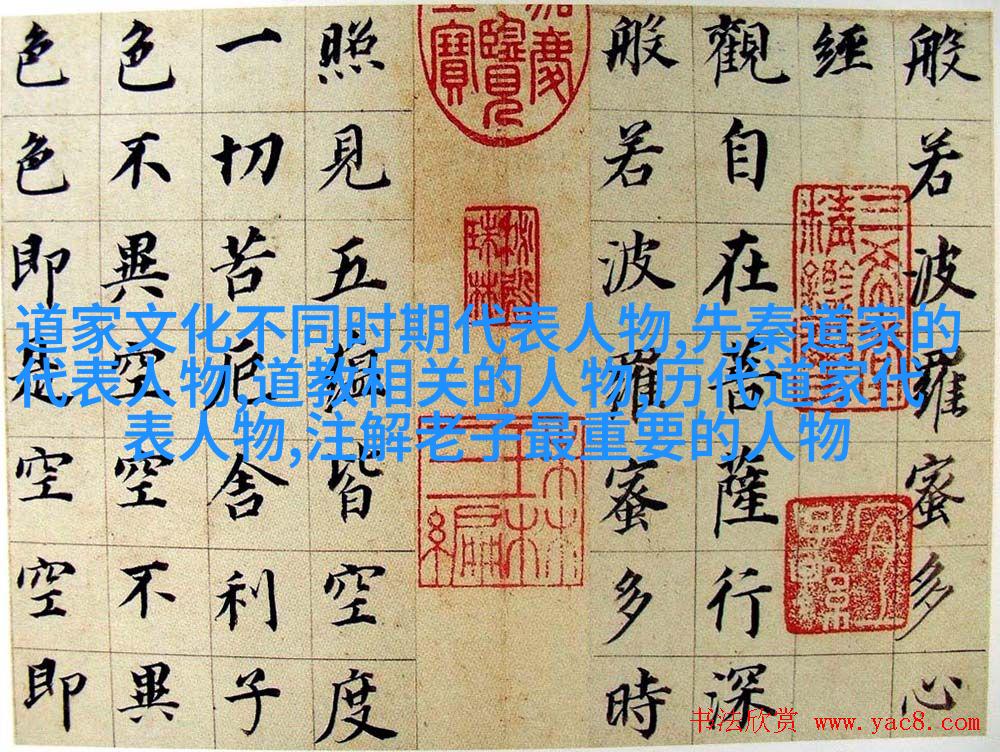 般若波羅蜜多心
經
觀自在菩薩行深
般若波羅蜜多時
照見五蘊皆空度
一切苦厄舍利子
色不異空空不異
色色即是空空即
道家文化不同时期代表人物,先秦道家的
代表人物,道教相关的人物,历代道家代
表人物,注解老子最重要的人物
秘殿珠林
书法欣赏 www.yac8.com